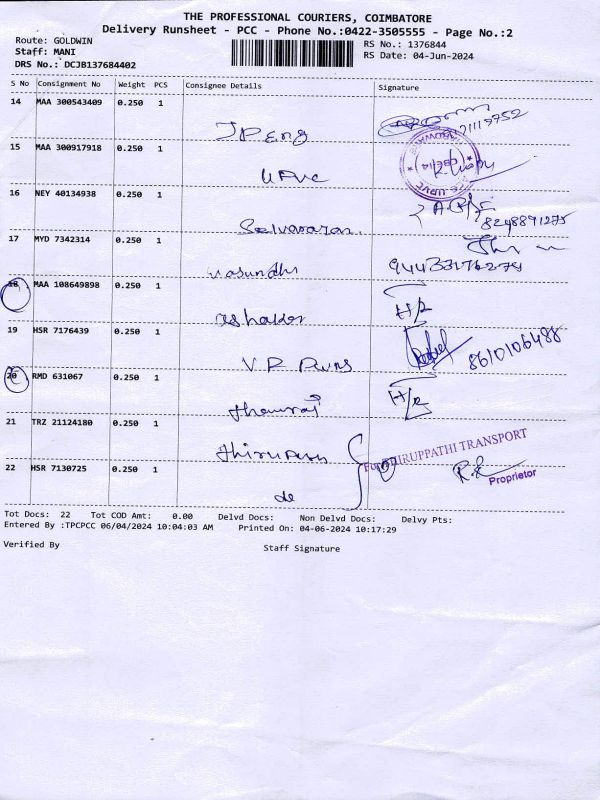 THE PROFESSIONAL COURIERS, COIMBATORE
Delivery Runsheet - PCC - Phone No.:0422-3505555 - Page No.:2
Route: GOLDWIN
Staff: MANI
DRS No.: DCJB137684402
RS No.: 1376844
RS Date: 04-Jun-2024
S No Consignment No Weight PCS Consignee Details Signature
14 MAA 300543409 0.250 1
JP Eng
15 MAA 300917918 0.250 1
UPVC
16 NEY 40134938 0.250 1
Selvavaran 8248891275
17 MYD 7342314 0.250 1
Vasundhi
18 MAA 108649898 0.250 1
H/R
19 HSR 7176439 0.250 1
V P 8610106488
20 RMD 631067 0.250 1
H/R
21 TRZ 21124180 0.250 1
For THIRUPPATHI TRANSPORT
22 HSR 7130725 0.250 1
do
Proprietor
Tot Docs: 22 Tot COD Amt: 0.00 Delvd Docs: Non Delvd Docs: Delvy Pts:
Entered By :TPCPCC 06/04/2024 10:04:03 AM Printed On: 04-06-2024 10:17:29
Verified By Staff Signature